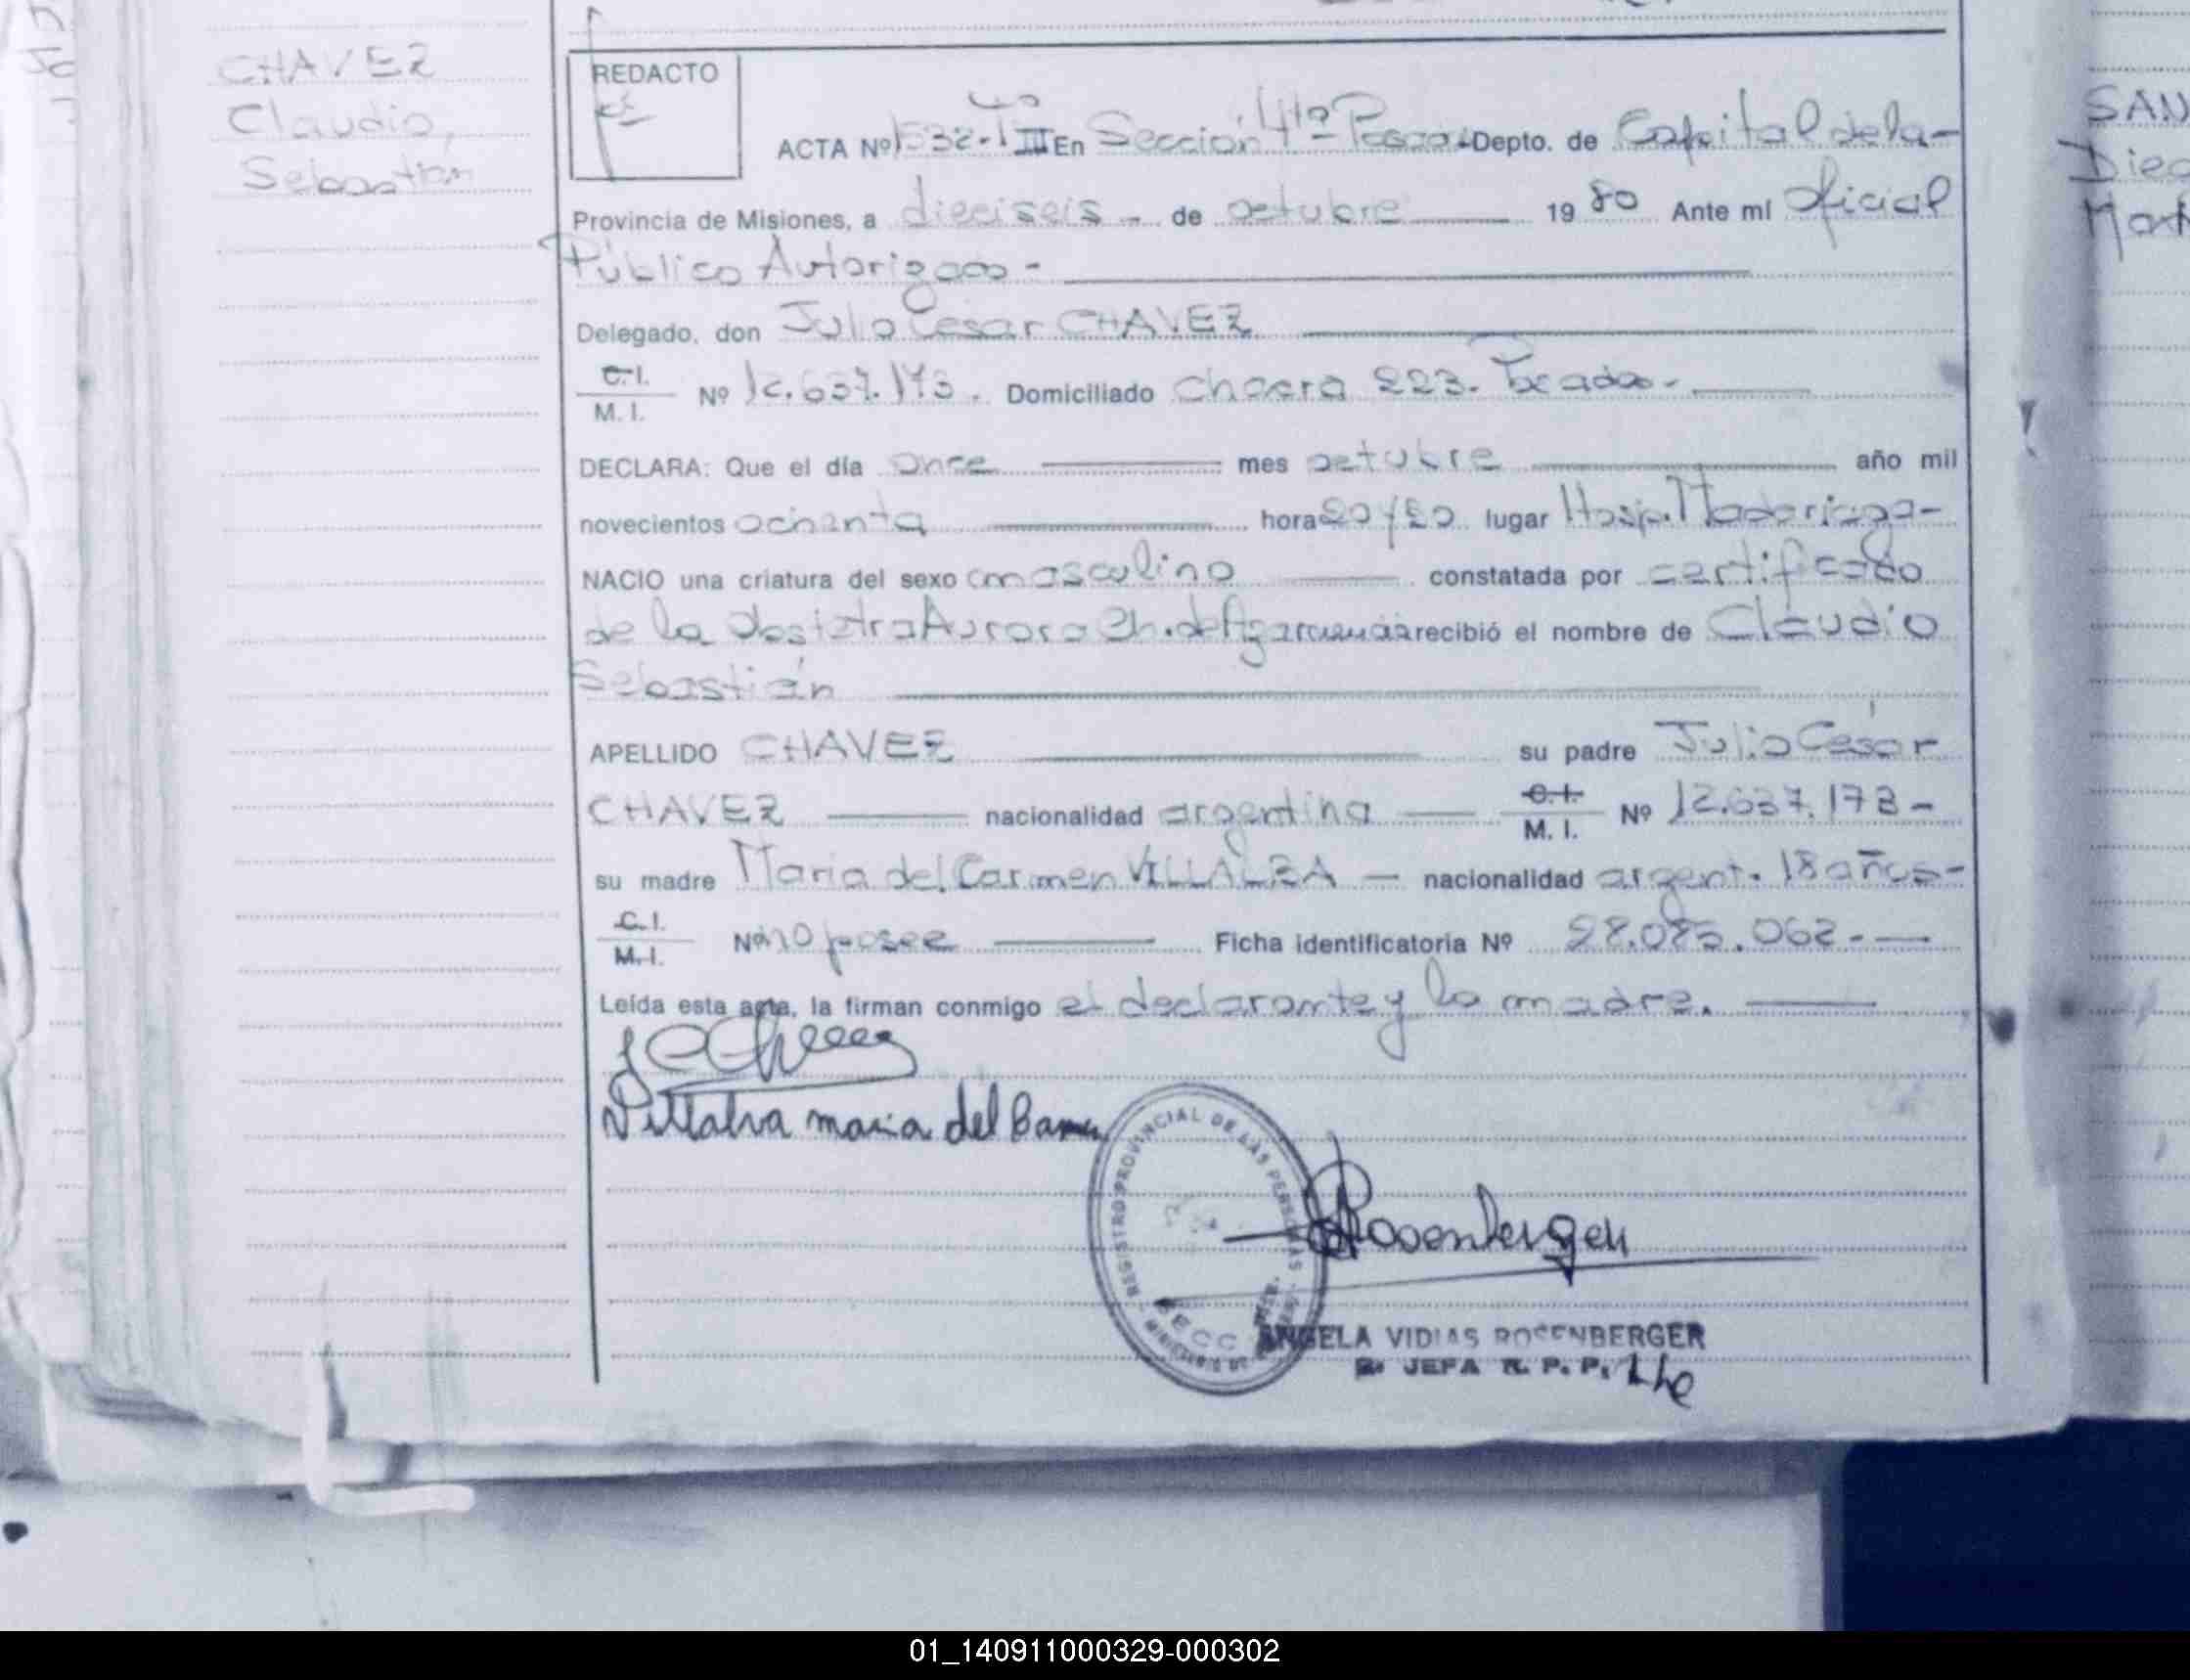 CHAVEZ
Claudio,
Sebastian
REDACTO
ACTA Nº 1532-Tº III En Sección 4ta Posadas Depto. de Capital de la-
Provincia de Misiones, a dieciseis - de octubre 19 80 Ante mí Oficial
Público Autorizado -
Delegado, don Julio Cesar CHAVEZ
C.I.
M. I. Nº 12.637.173. Domiciliado Chacra 223. Posadas-
DECLARA: Que el día once mes octubre año mil
novecientos ochenta hora 20 y 20 lugar Hosp. Madariaga-
NACIO una criatura del sexo masculino constatada por certificado
de la Obstetra Aurora Ch. de recibió el nombre de Claudio
Sebastián
APELLIDO CHAVEZ su padre Julio César
CHAVEZ nacionalidad argentina C.I.
M. I. Nº 12.637.173-
su madre Maria del Carmen VILLALBA — nacionalidad argent. 18 años-
C.I.
M.I. Nº no posee Ficha identificatoria Nº 062.-
Leída esta acta, la firman conmigo el declarante y la madre.
Villalva maria del
REGISTRO PROVINCIAL DE LAS PERSONAS
Rosenberger
ANGELA VIDIAS ROSENBERGER
JEFA R. P. P.
SAN
Dieg
01_140911000329-000302